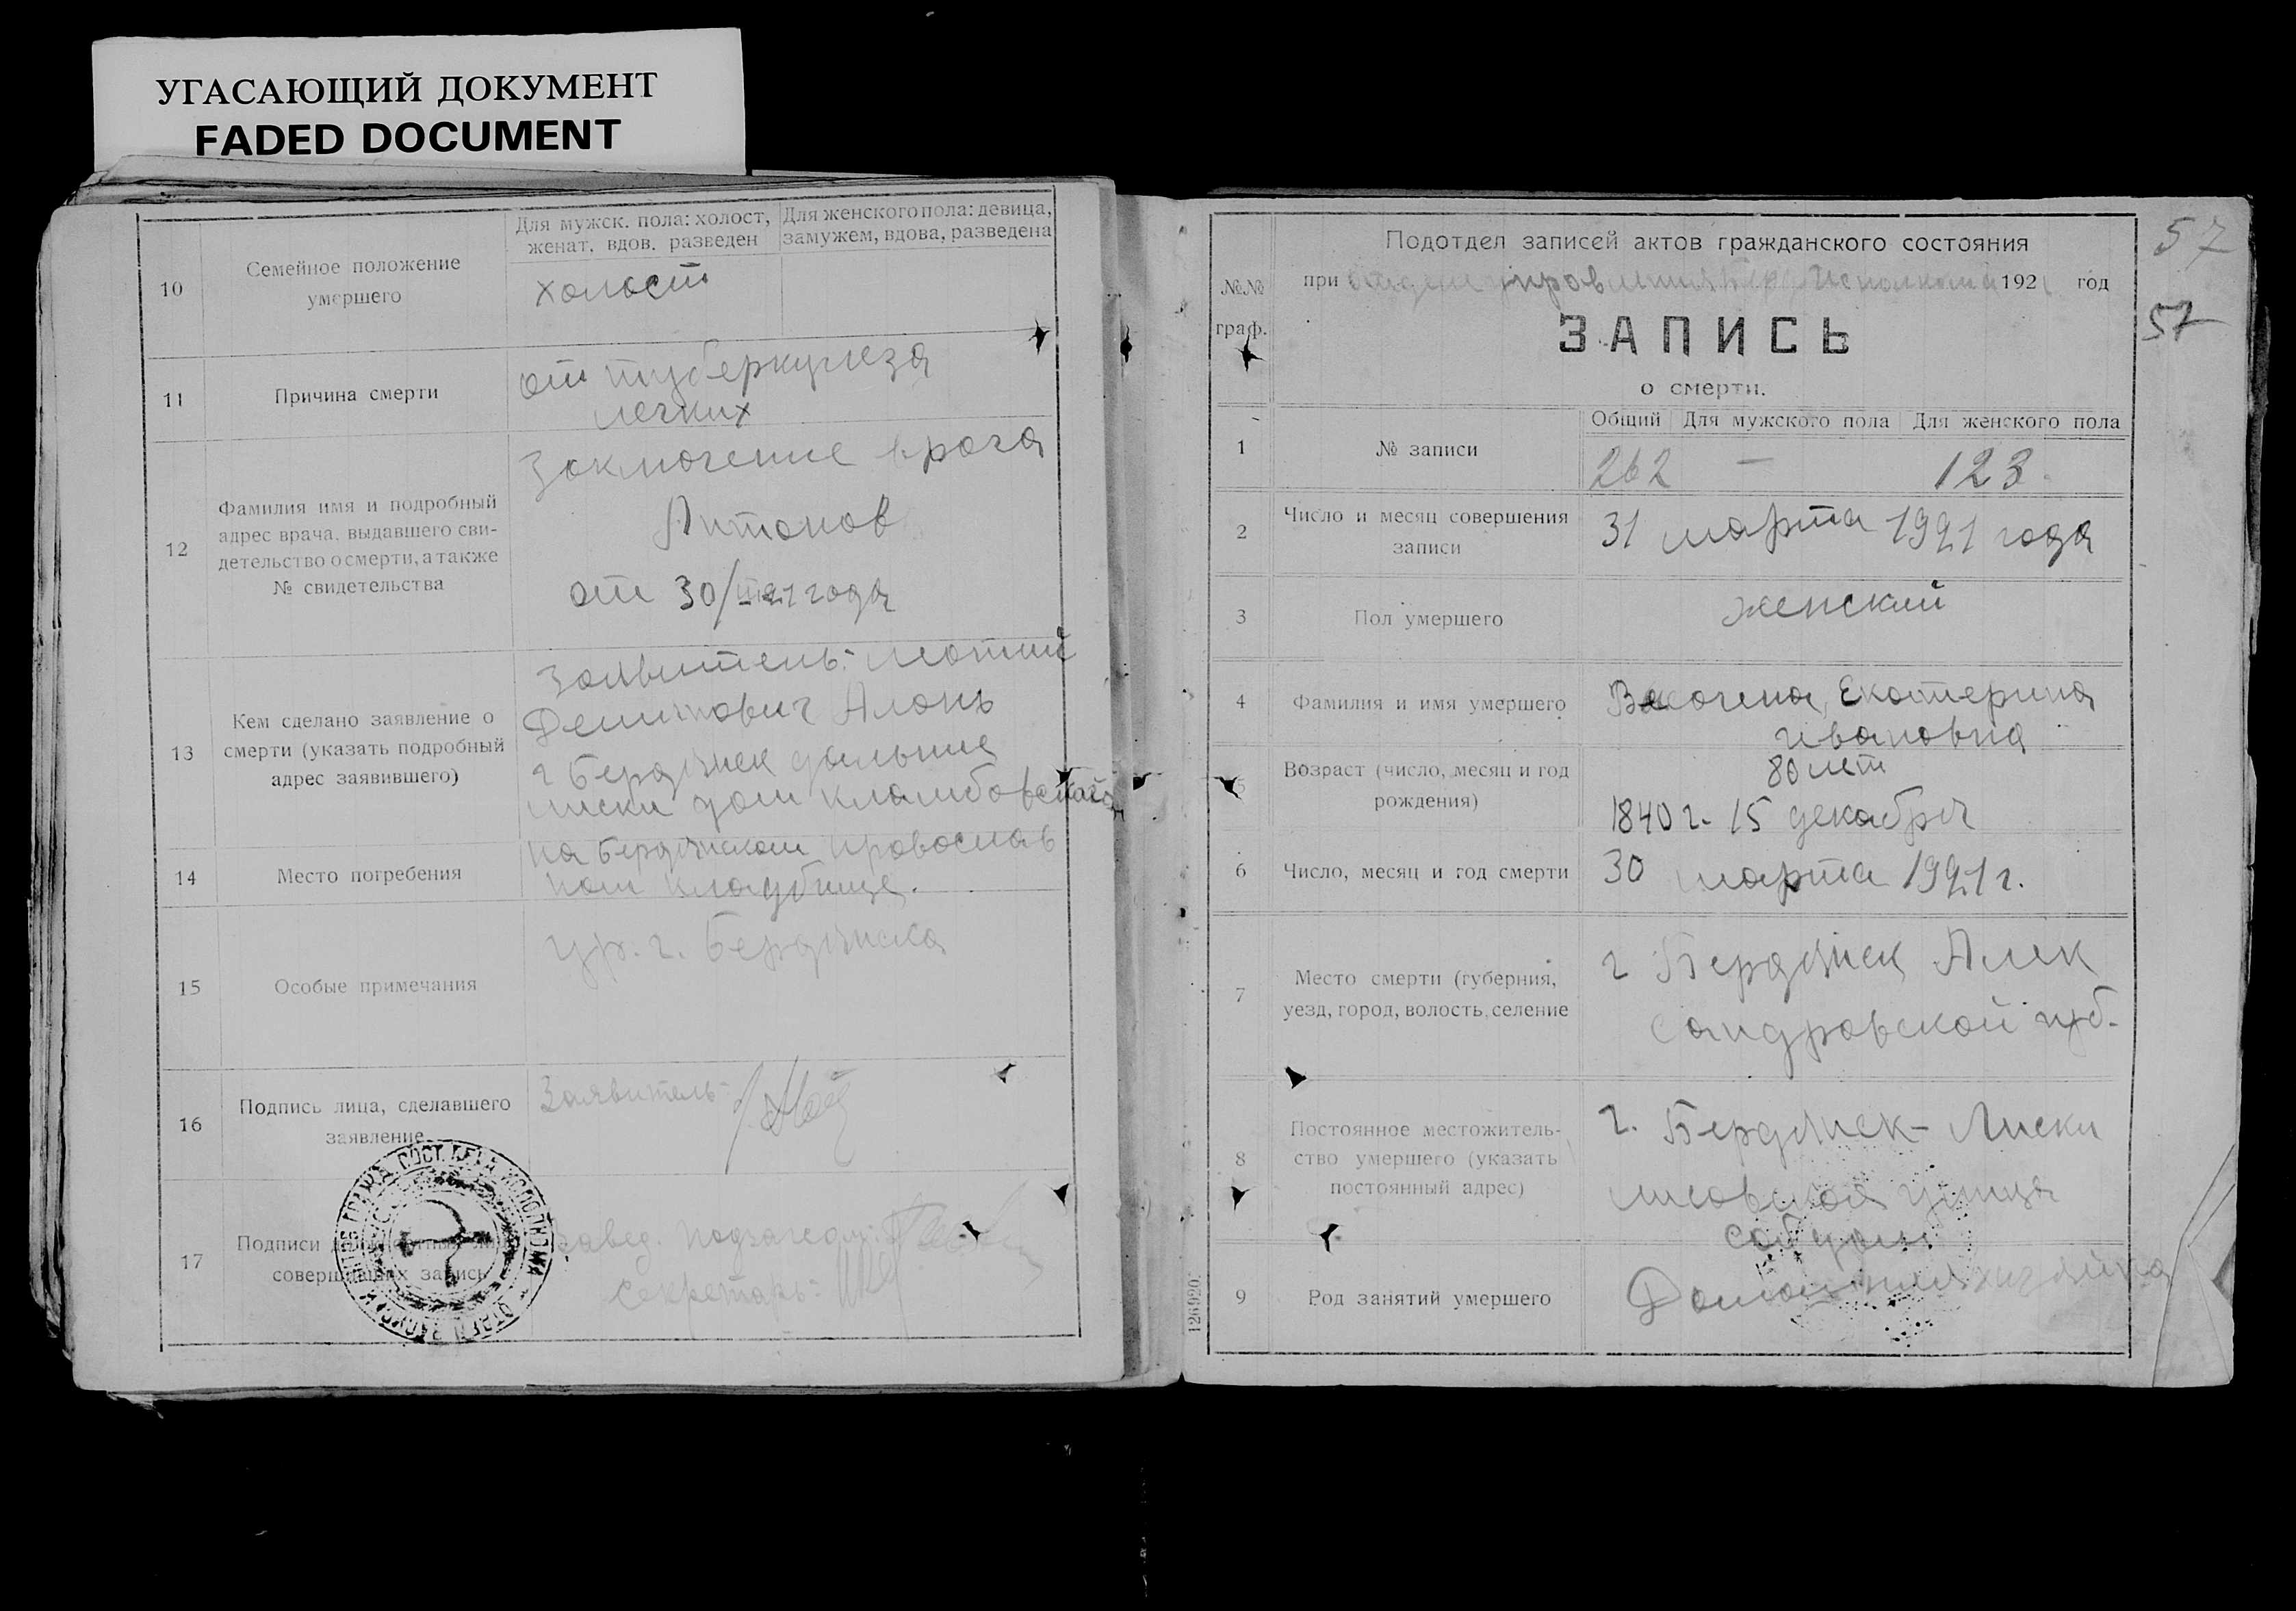 УГАСАЮЩИЙ ДОКУМЕНТ
FADED DOCUMENT
10
Семейное положение
умершего
Для мужск. пола: холост,
женат, вдов. разведен
Для женского пола: девица,
замужем, вдова, разведена
холост
11
Причина смерти
от туберкулеза
легких
12
Фамилия имя и подробный
адрес врача, выдавшего сви-
детельство о смерти, а также
№ свидетельства
Заключение врача
Антонов
от 30/III-21 года
13
Кем сделано заявление о
смерти (указать подробный
адрес заявившего)
Заявитель:
г Бердянск дальние
лиски дом
14
Место погребения
на Бердянском православ
ном кладбище.
15
Особые примечания
ур. г. Бердянска
16
Подпись лица, сделавшего
заявление
Заявитель
17
Подписи
совершивших запись
Завед. подзагсом:
Секретарь:
57
57
№№
граф.
Подотдел записей актов гражданского состояния
при отделе управления Берд Исполкома 1921 год
ЗАПИСЬ
о смерти.
1
№ записи
Общий
Для мужского пола
Для женского пола
262 — 123.
2
Число и месяц совершения
записи
31 марта 1921 года
3
Пол умершего
женский
4
Фамилия и имя умершего
Екатерина
Ивановна
5
Возраст (число, месяц и год
рождения)
80 лет
1840 г. 15 декабря
6
Число, месяц и год смерти
30 марта 1921 г.
7
Место смерти (губерния,
уезд, город, волость, селение
г Бердянск Алек
сандровской губ.
8
Постоянное местожитель-
ство умершего (указать
постоянный адрес)
г. Бердянск - Лиски
улица
соб дом
9
Род занятий умершего
Домашняя хозяйка
126920.